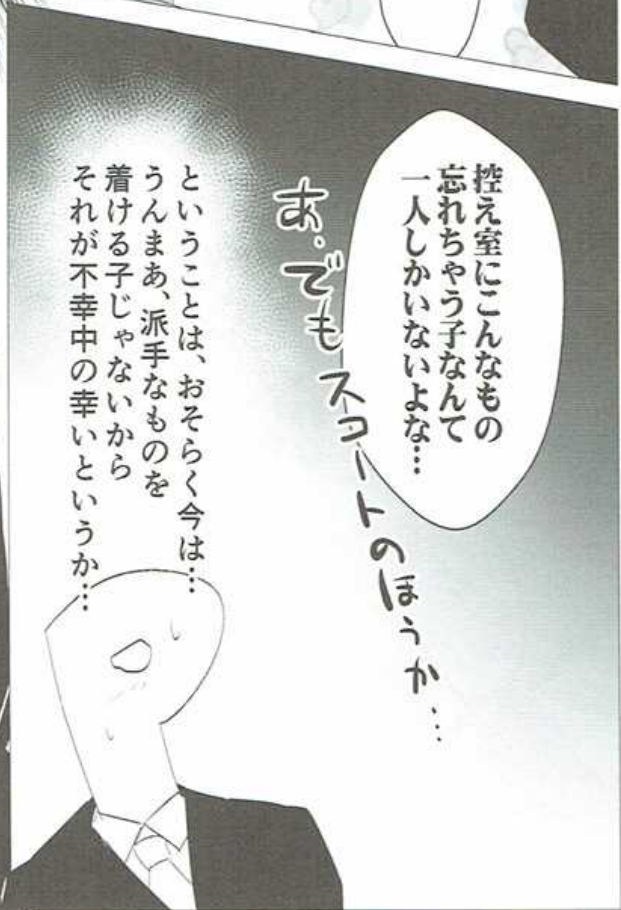 控え室にこんなもの
忘れちゃう子なんて
一人しかいないよな…
あ、でもスコートのほうか…
ということは、おそらく今は…
うんまあ、派手なものを
着ける子じゃないから
それが不幸中の幸いというか…